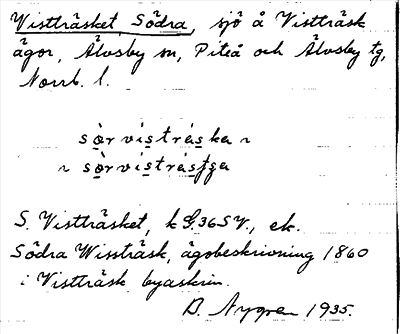 Vistträsket, Södra, sjö å Vistträsk
ägor, Älvsby sn, Piteå och Älvsby tg,
Norrb. l.
sörvisträska
sörvisträsʃʒa
S. Vistträsket, k G.36SV., ek.
Södra Wissträsk, ägobeskrivning 1860
i Vistträsk byaskrin.
B. Nygren 1935.